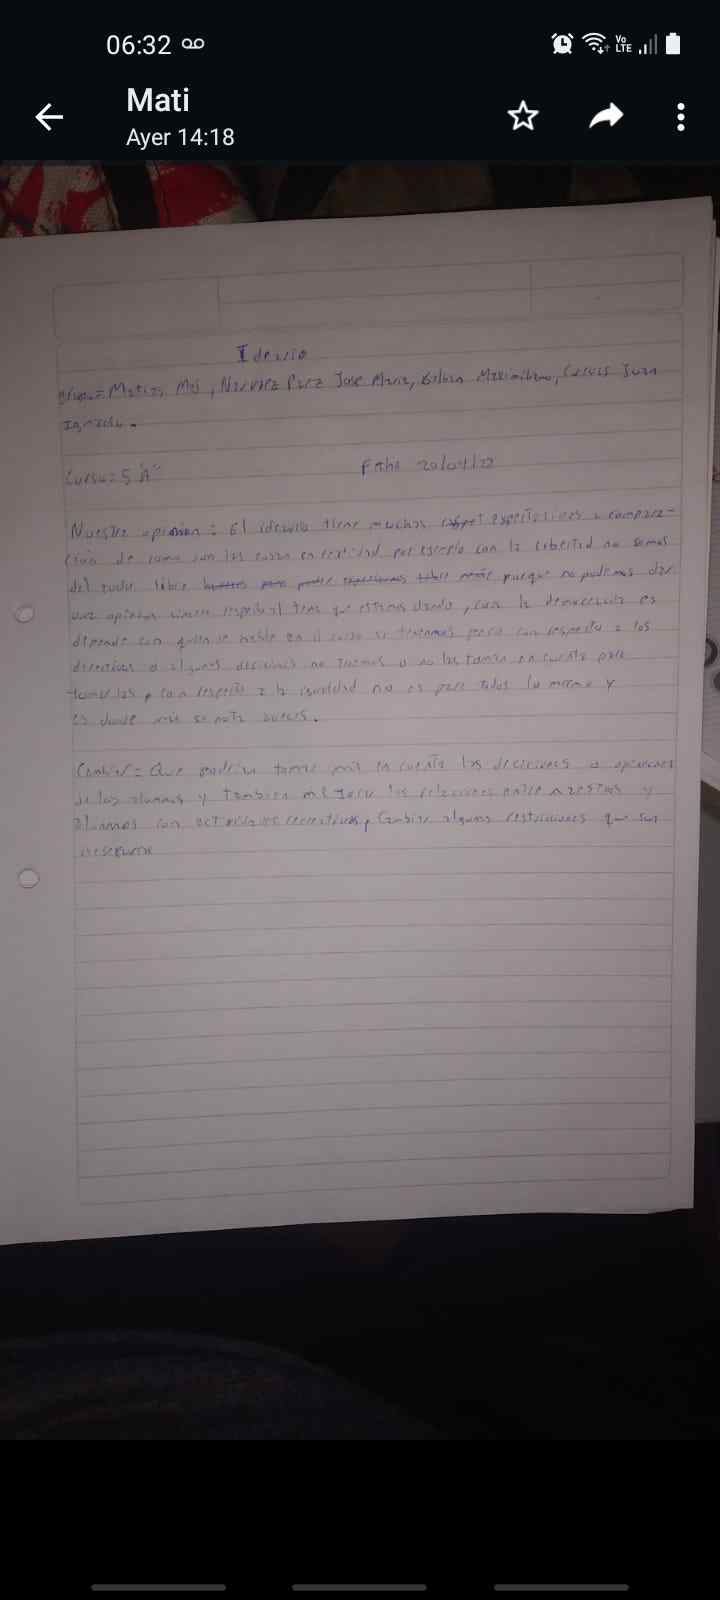 06:32
Vo
LTE
Mati
Ayer 14:18
Ideario
Grupo= Matias, Narvaez Paez Jose Maria, Maximiliano, Juan
Ignacio.
Curso= 5"A"
Fecha 20/04/22
Nuestra opinion = El ideario tiene muchas espectativas a compara-
cion de como son las cosas en realidad, por ejemplo con la libertad no somos
del todo libre porque no podemos dar
una opinion respecto al tema que estamos dando, con la democracia es
depende con quien se hable en el curso si tenemos pero con respecto a los
directivos o algunas deciciones no tenemos o no las toman en cuenta para
tomarlas, y con respecto a la igualdad no es para todos lo mismo y
es donde mas se nota aveces.
Cambiar= Que podrian tomar mas en cuenta las deciciones o opiniones
de los alumnos y tambien mejorar las relaciones entre maestros y
alumnos con actividades recreativas, Cambiar algunas restricciones que son